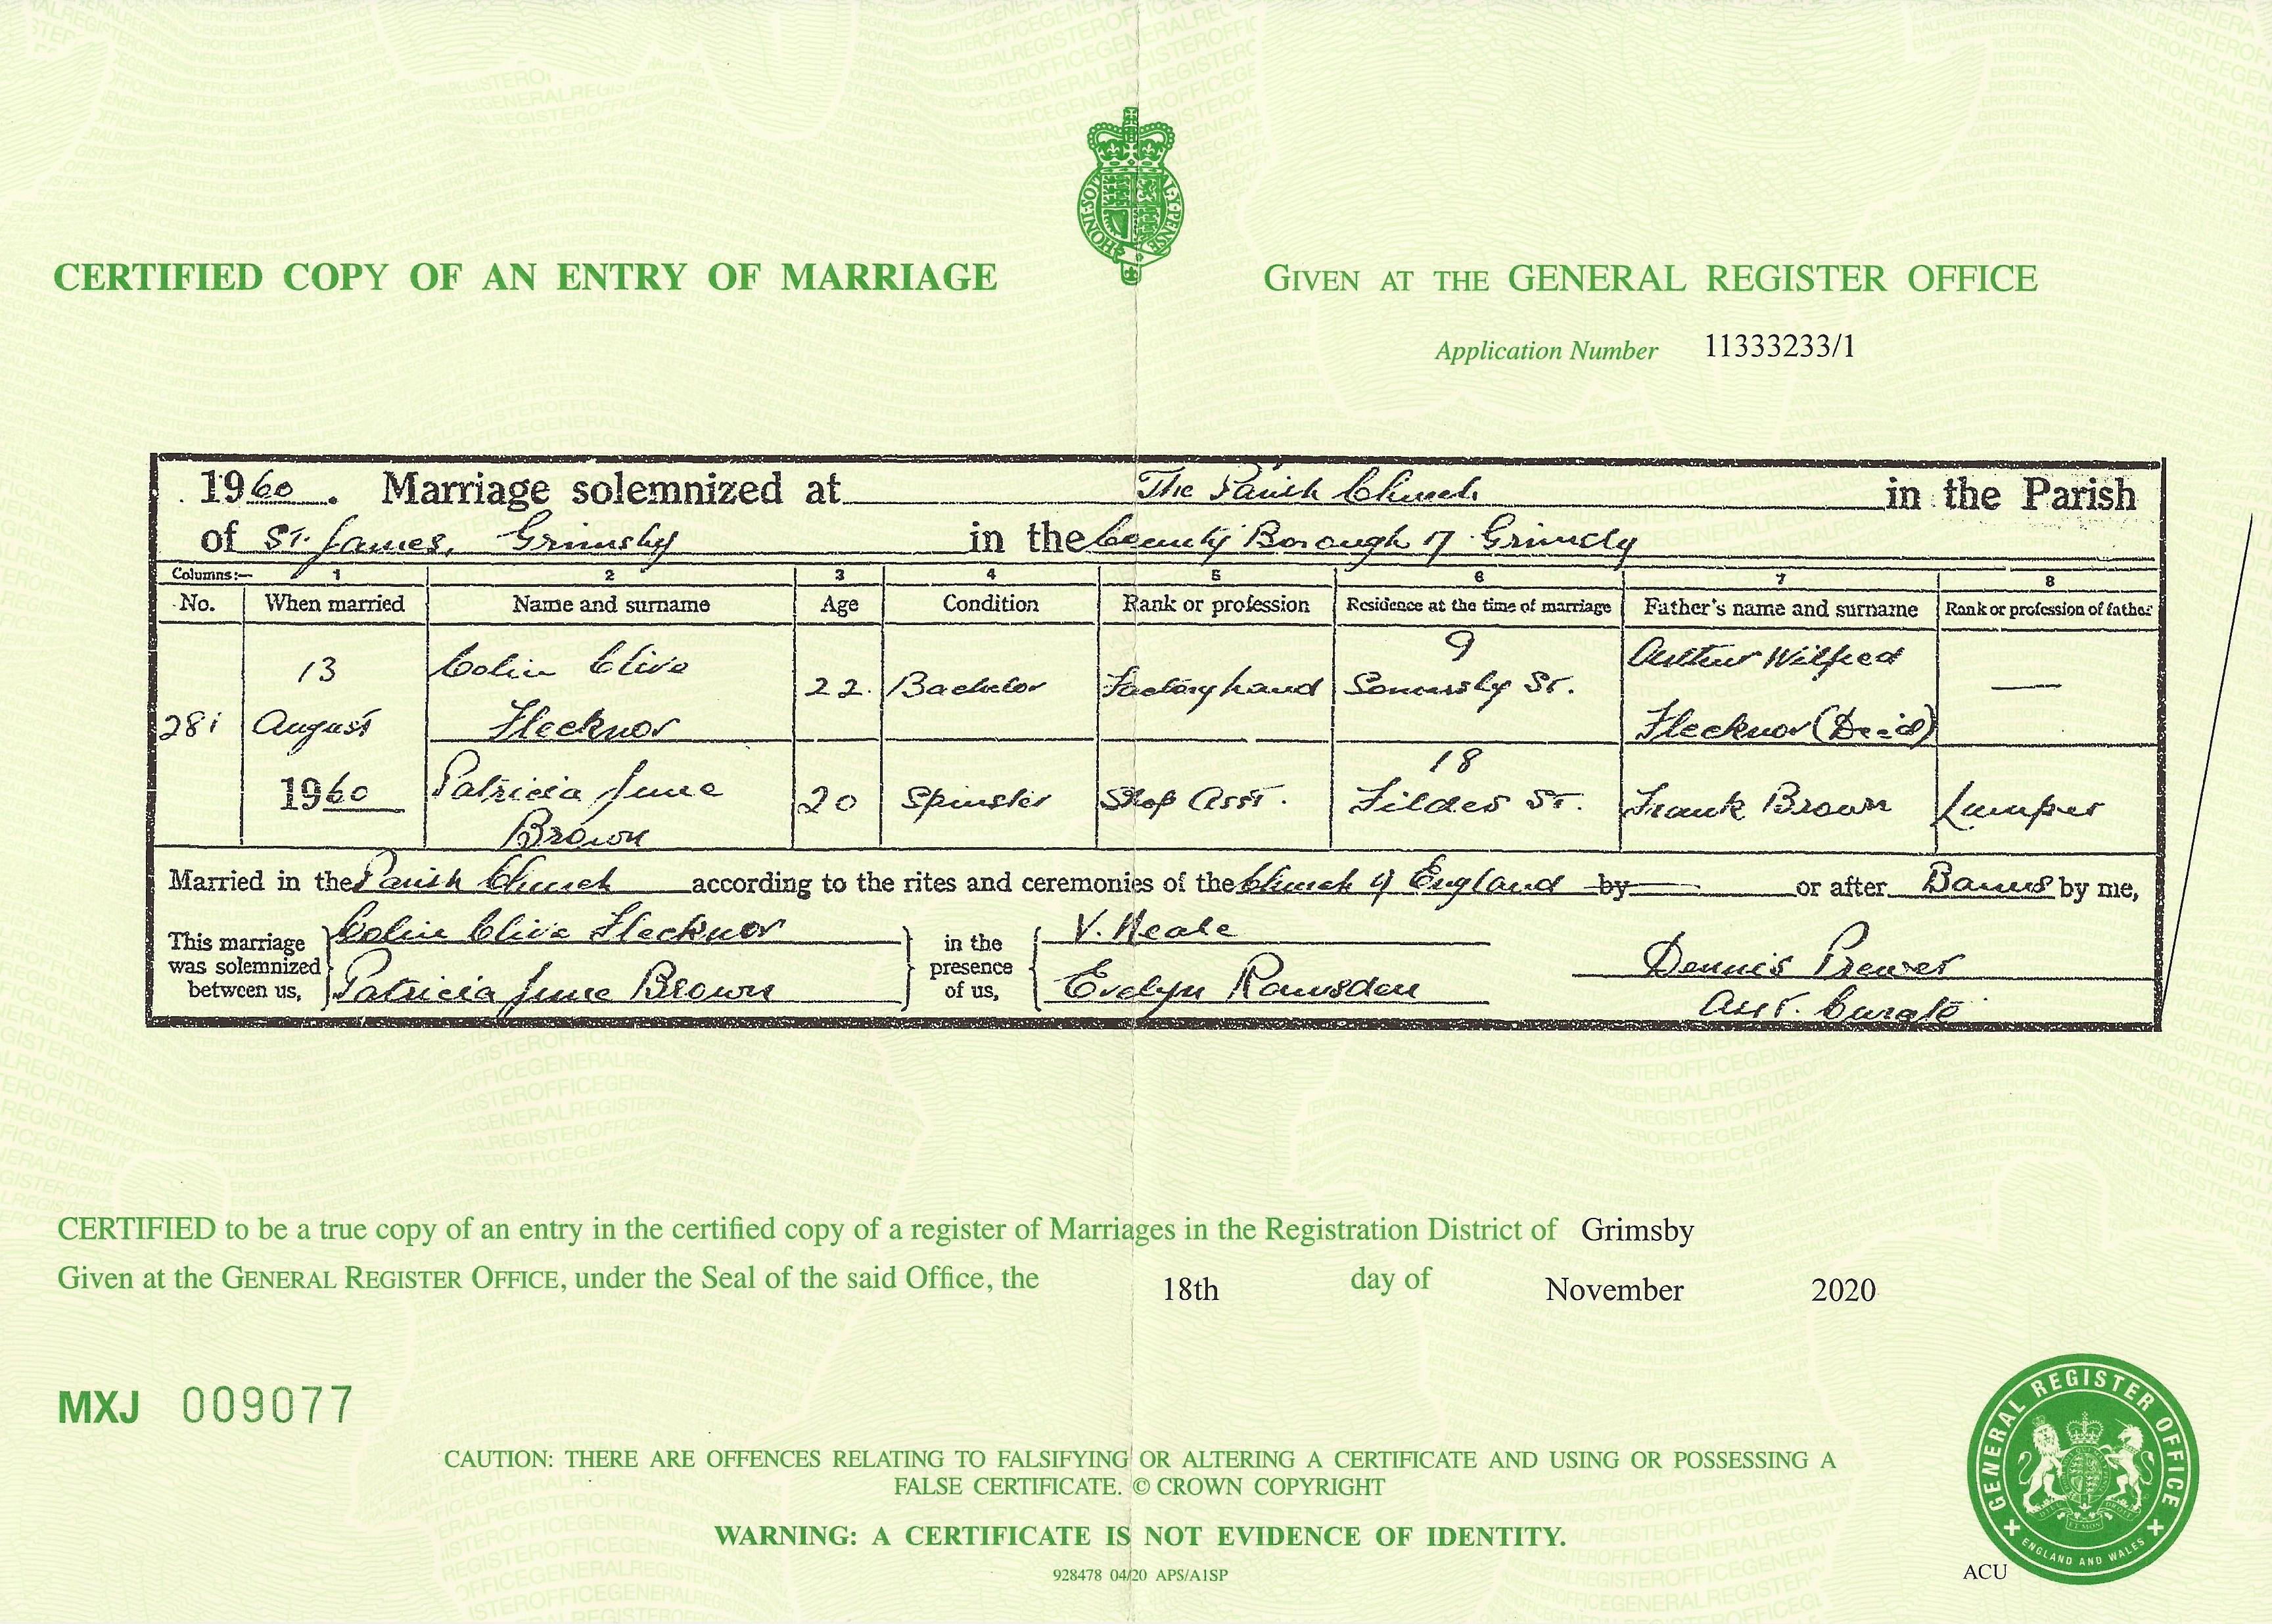 CERTIFIED COPY OF AN ENTRY OF MARRIAGE
GIVEN AT THE GENERAL REGISTER OFFICE
Application Number 11333233/1
1960. Marriage solemnized at The Parish Church in the Parish
of St. James, Grimsby in the County Borough of Grimsby
Columns:— 1 2 3 4 5 6 7 8
No. When married Name and surname Age Condition Rank or profession Residence at the time of marriage Father's name and surname Rank or profession of father
281 13 August 1960 Colin Clive Flecknor 22. Bachelor Factory hand 9 Somersby St. Arthur Wilfred Flecknor (Dec'd) —
Patricia June Brown 20 Spinster Shop Asst. 18 Fildes St. Frank Brown Lumper
Married in the Parish Church according to the rites and ceremonies of the Church of England by — or after Banns by me,
This marriage was solemnized between us, Colin Clive Flecknor in the presence of us, V. Neale Dennis Brewer
Patricia June Brown Evelyn Ramsden Asst. Curate
CERTIFIED to be a true copy of an entry in the certified copy of a register of Marriages in the Registration District of Grimsby
Given at the GENERAL REGISTER OFFICE, under the Seal of the said Office, the 18th day of November 2020
MXJ 009077
CAUTION: THERE ARE OFFENCES RELATING TO FALSIFYING OR ALTERING A CERTIFICATE AND USING OR POSSESSING A
FALSE CERTIFICATE. © CROWN COPYRIGHT
WARNING: A CERTIFICATE IS NOT EVIDENCE OF IDENTITY.
928478 04/20 APS/A1SP
ACU
GENERAL REGISTER OFFICE
ENGLAND AND WALES